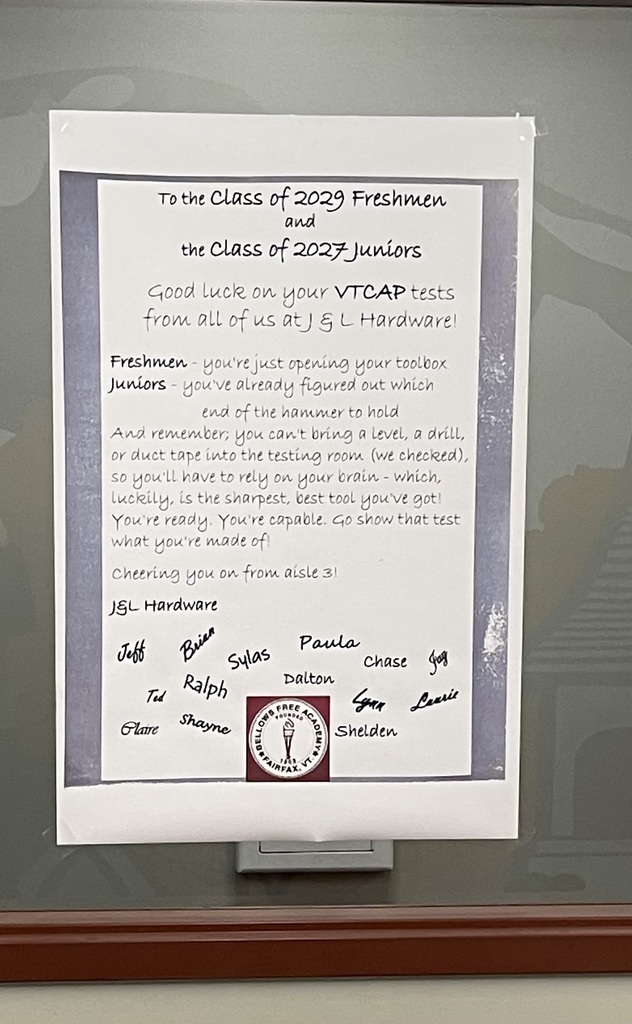 To the Class of 2029 Freshmen
and
the Class of 2027 Juniors
Good luck on your VTCAP tests
from all of us at J & L Hardware!
Freshmen - you're just opening your toolbox
Juniors - you've already figured out which
end of the hammer to hold
And remember; you can't bring a level, a drill,
or duct tape into the testing room (we checked),
so you'll have to rely on your brain - which,
luckily, is the sharpest, best tool you've got!
You're ready. You're capable. Go show that test
what you're made of!
Cheering you on from aisle 3!
J&L Hardware
Jeff Brian Sylas Paula Chase Jay
Ted Ralph Dalton Lynn Laurie
Claire Shayne Shelden
BELLOWS FREE ACADEMY
FOUNDED
1903
FAIRFAX, VT.